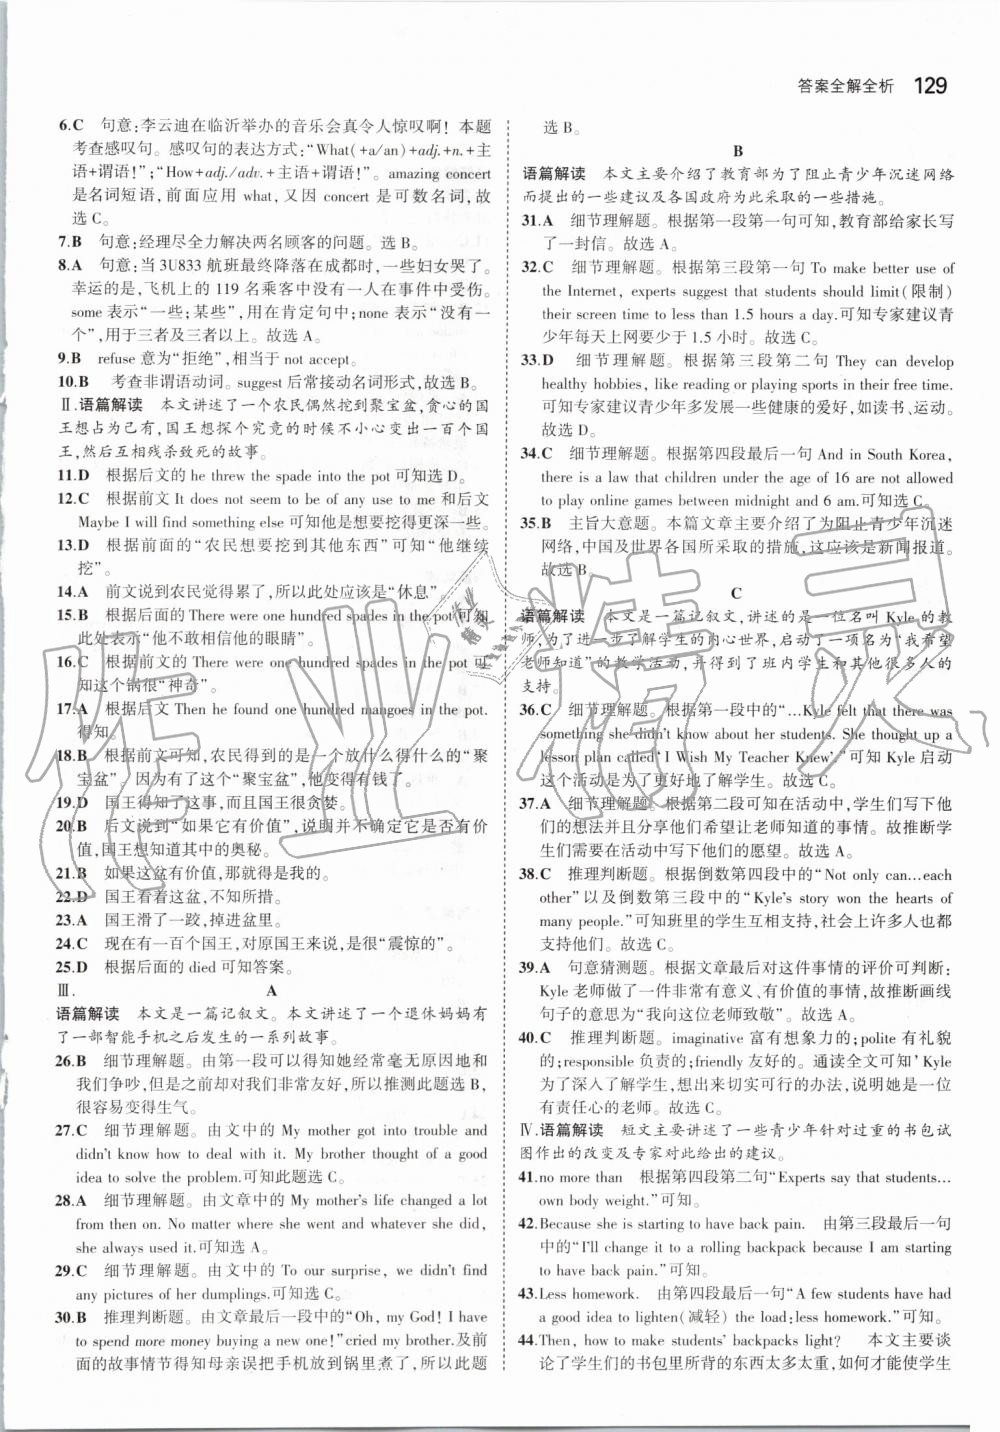 答案全解全析 129
6.C 句意:李云迪在临沂举办的音乐会真令人惊叹啊! 本题
考查感叹句。感叹句的表达方式:“What(+a/an)+adj.+n.+主
语+谓语!”;“How+adj./adv.+主语+谓语!”。amazing concert
是名词短语,前面应用 what,又因 concert 是可数名词,故
选 C。
7.B 句意:经理尽全力解决两名顾客的问题。选 B。
8.A 句意:当 3U833 航班最终降落在成都时,一些妇女哭了。
幸运的是,飞机上的 119 名乘客中没有一人在事件中受伤。
some 表示“一些;某些”,用在肯定句中;none 表示“没有一
个”,用于三者及三者以上。故选 A。
9.B refuse 意为“拒绝”,相当于 not accept。
10.B 考查非谓语动词。suggest 后常接动名词形式,故选 B。
Ⅱ.语篇解读 本文讲述了一个农民偶然挖到聚宝盆,贪心的国
王想占为已有,国王想探个究竟的时候不小心变出一百个国
王,然后互相残杀致死的故事。
11.D 根据后文的 he threw the spade into the pot 可知选 D。
12.C 根据前文 It does not seem to be of any use to me 和后文
Maybe I will find something else 可知他是想要挖得更深一些。
13.D 根据前面的“农民想要挖到其他东西”可知“他继续
挖”。
14.A 前文说到农民觉得累了,所以此处应该是“休息”。
15.B 根据后面的 There were one hundred spades in the pot 可知
此处表示“他不敢相信他的眼睛”。
16.C 根据前文的 There were one hundred spades in the pot 可
知这个锅很“神奇”。
17.A 根据后文 Then he found one hundred mangoes in the pot.
得知。
18.B 根据前文可知,农民得到的是一个放什么得什么的“聚
宝盆”。因为有了这个“聚宝盆”,他变得有钱了。
19.D 国王得知了这事,而且国王很贪婪。
20.B 后文说到“如果它有价值”,说明并不确定是否有价
值,国王想知道其中的奥秘。
21.B 如果这盆有价值,那就是我的。
22.D 国王看着这盆,不知所措。
23.A 国王滑了一跤,掉进盆里。
24.C 现在有一百个国王,对原国王来说,是很“震惊的”。
25.D 根据后面的 died 可知答案。
Ⅲ. A
语篇解读 本文是一篇记叙文。本文讲述了一个退休妈妈有
了一部智能手机之后发生的一系列故事。
26.B 细节理解题。由第一段可以得知她经常毫无原因地和
我们争吵,但是之前却对我们非常友好,所以推测此题选 B,
很容易变得生气。
27.C 细节理解题。由文中的 My mother got into trouble and
didn't know how to deal with it. My brother thought of a good
idea to solve the problem.可知此题选 C。
28.A 细节理解题。由文章中的 My mother's life changed a lot
from then on. No matter where she went and whatever she did,
she always used it.可知选 A。
29.C 细节理解题。由文中的 To our surprise, we didn't find
any pictures of her dumplings.可知选 C。
30.B 推理判断题。由文章最后一段中的“Oh, my God! I have
to spend more money buying a new one!”cried my brother.及前
面的故事情节得知母亲误把手机放到锅里煮了,所以此题
选 B。
B
语篇解读 本文主要介绍了教育部为了阻止青少年沉迷网络
而提出的一些建议及各国政府为此采取的一些措施。
31.A 细节理解题。根据第一段第一句可知,教育部给家长写
了一封信。故选 A。
32.C 细节理解题。根据第三段第一句 To make better use of
the Internet, experts suggest that students should limit(限制)
their screen time to less than 1.5 hours a day.可知专家建议青
少年每天上网要少于 1.5 小时。故选 C。
33.D 细节理解题。根据第三段第二句 They can develop
healthy hobbies, like reading or playing sports in their free time.
可知专家建议青少年多发展一些健康的爱好,如读书、运动。
故选 D。
34.C 细节理解题。根据第四段最后一句 And in South Korea,
there is a law that children under the age of 16 are not allowed
to play online games between midnight and 6 am.可知选 C。
35.B 主旨大意题。本篇文章主要介绍了为阻止青少年沉迷
网络,中国及世界各国所采取的措施,这应该是新闻报道。
故选 B。
C
语篇解读 本文是一篇记叙文,讲述的是一位名叫 Kyle 的教
师,为了进一步了解学生的内心世界,启动了一项名为“我希望
老师知道”的教学活动,并得到了班内学生和其他很多人的
支持。
36.C 细节理解题。根据第一段中的“…Kyle felt that there was
something she didn't know about her students. She thought up a
lesson plan called ‘I Wish My Teacher Knew’.”可知 Kyle 启动
这个活动是为了更好地了解学生。故选 C。
37.A 细节理解题。根据第二段可知在活动中,学生们写下他
们的想法并且分享他们希望让老师知道的事情。故推断学
生们需要在活动中写下他们的愿望。故选 A。
38.C 推理判断题。根据倒数第四段中的“Not only can…each
other”以及倒数第三段中的“Kyle's story won the hearts of
many people.”可知班里的学生互相支持,社会上许多人也都
支持他们。故选 C。
39.A 句意猜测题。根据文章最后对这件事情的评价可判断:
Kyle 老师做了一件非常有意义、有价值的事情,故推断画线
句子的意思为“我向这位老师致敬”。故选 A。
40.C 推理判断题。imaginative 富有想象力的;polite 有礼貌
的;responsible 负责的;friendly 友好的。通读全文可知 Kyle
为了深入了解学生,想出来切实可行的办法,说明她是一位
有责任心的老师。故选 C。
Ⅳ.语篇解读 短文主要讲述了一些青少年针对过重的书包试
图作出的改变及专家对此给出的建议。
41.no more than 根据第四段第二句“Experts say that students…
own body weight.”可知。
42.Because she is starting to have back pain. 由第三段最后一句
中的“I'll change it to a rolling backpack because I am starting
to have back pain.”可知。
43.Less homework. 由第四段最后一句“A few students have had
a good idea to lighten(减轻) the load:less homework.”可知。
44.Then, how to make students' backpacks light? 本文主要谈
论了学生们的书包里所背的东西太多太重,如何才能使学生
作业精灵
作业
精灵